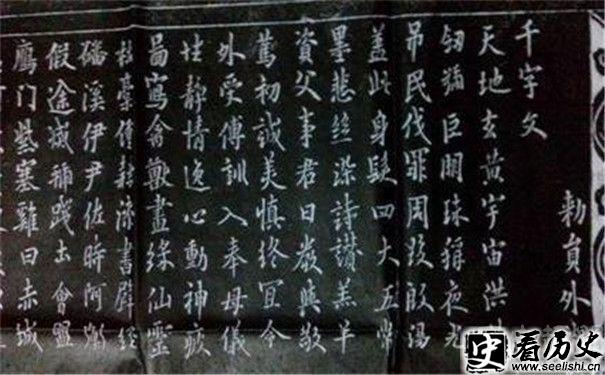 勑員外
千字文
天地玄黃宇宙洪
劒號巨闕珠稱夜光
弔民伐罪周發殷湯
蓋此身髮四大五常
墨悲絲染詩讚羔羊
資父事君曰嚴與敬
篤初誠美慎終宜令
外受傅訓入奉母儀
性靜情逸心動神疲
啚寫禽獸畫綵仙靈
杜稾鍾隸漆書壁經
磻溪伊尹佐時阿衡
假途滅虢踐土會盟
鴈門紫塞雞田赤城
史 看历史
www.seelishi.cn